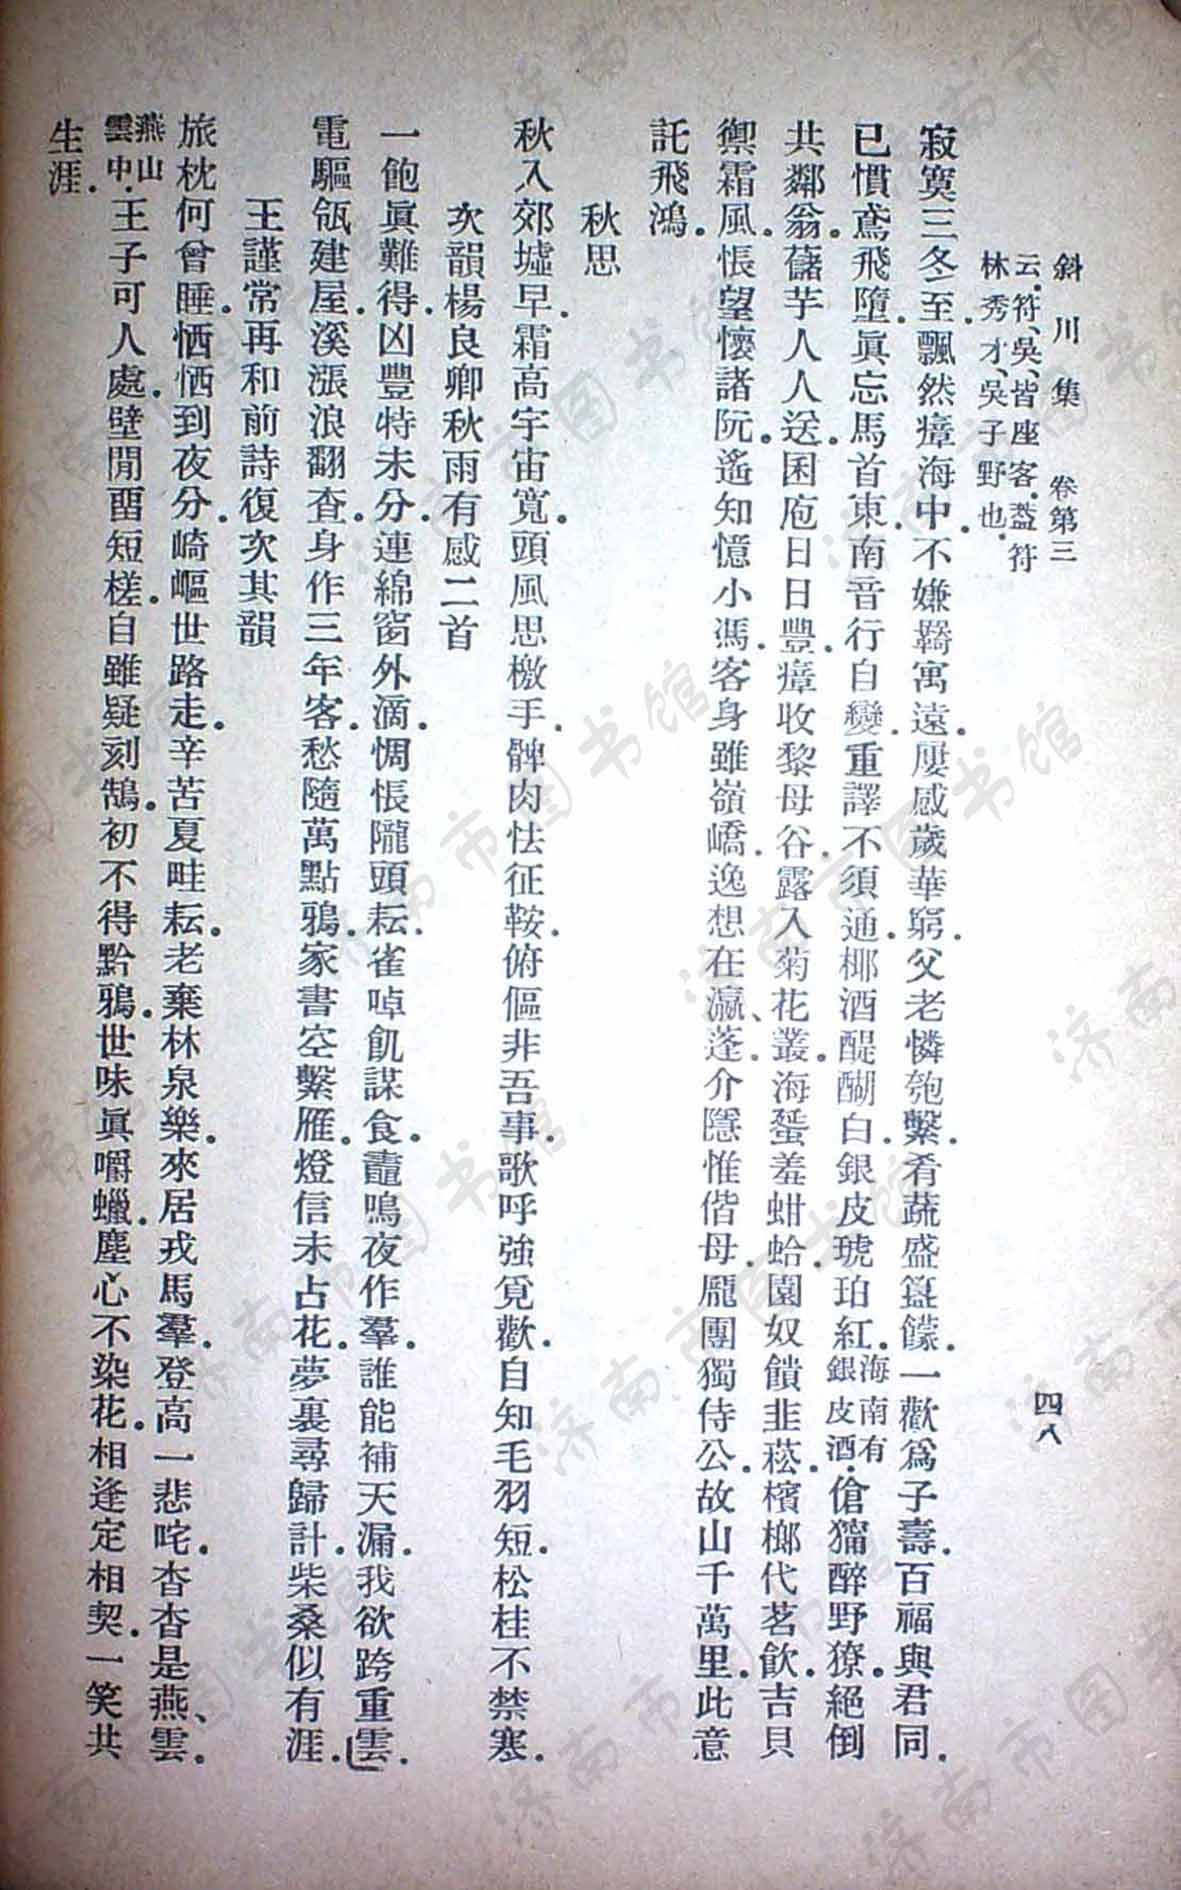 斜川集 卷第三 四八
云符、吳、皆座客蓋符
林秀才、吳子野也.
寂寞三冬至.飄然瘴海中.不嫌羇寓遠.屢感歲華窮.父老憐匏繫.肴蔬盛簋饛.一歡爲子壽.百福與君同.
已慣鳶飛墮.眞忘馬首東.南音行自變.重譯不須通.椰酒醍醐白.銀皮琥珀紅.海南有銀皮酒.傖獰醉野獠.絕倒
共鄰翁.藷芋人人送.囷庖日日豐.瘴收黎母谷.露入菊花叢.海蜑羞蚶蛤.園奴饋韭菘.檳榔代茗飲.吉貝
禦霜風.悵望懷諸阮.遙知憶小馮.客身雖嶺嶠.逸想在瀛、蓬.介隱惟偕母.龐團獨侍公.故山千萬里.此意
託飛鴻.
秋思
秋入郊墟早.霜高宇宙寬.頭風思檄手.髀肉怯征鞍.俯傴非吾事.歌呼強覓歡.自知毛羽短.松桂不禁寒.
次韻楊良卿秋雨有感二首
一飽眞難得.凶豐特未分.連綿窗外滴.惆悵隴頭耘.雀啅飢謀食.鼃鳴夜作羣.誰能補天漏.我欲跨重雲.
電驅瓴建屋.溪漲浪翻查.身作三年客.愁隨萬點鴉.家書空繫雁.燈信未占花.夢裏尋歸計.柴桑似有涯.
王謹常再和前詩復次其韻
旅枕何曾睡.恓恓到夜分.崎嶇世路走.辛苦夏畦耘.老棄林泉樂.來居戎馬羣.登高一悲咤.杳杳是燕、雲.
燕山雲中.王子可人處.壁閒畱短槎.自雖疑刻鵠.初不得黔鴉.世味眞嚼蠟.塵心不染花.相逢定相契.一笑共
生涯.